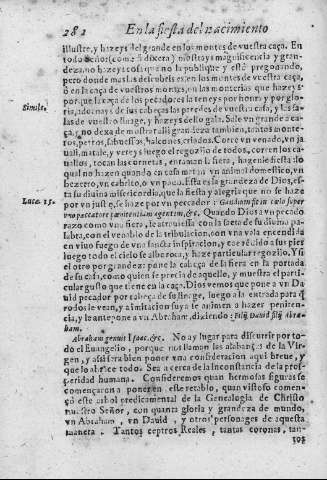 282 En la fiesta del nacimiento
illustre, y hazeys del grande en los montes de vuestra caça. En
todo Señor (como si dixera) mostrays magnificencia y gran
deza, no hazeys cosa que no la publique y esté pregonando,
pero donde mas la descubris es, en los montes de vuestra caça,
ò en la caça de vuestros montes, en las monterias que hazeys
porque la caça de los pecadores la teneys por honra y por glo-
ria, adornays de sus cabeças las paredes de vuestra casa, y las sa-
Simile. las de vuestro linage, y hazeys dello gala. Sale vn grande a ca-
ça, y no dexa de mostrar alli grandeza tambien, tantos monte-
ros, perros, sabuessos, halcones, criados. Corre vn venado, vn ja
uali, matale, y vereys luego el regozijo de todos, corren los ca-
uallos, tocan las cornetas, entra con la fiera, hagen le fiesta lo
qual no hazen quando en casa matan vn animal domestico, vn
bezerro, vn cabrito, vn pauo. Esta es la grandeza de Dios, es-
ta su diuina misericordia, que la fiesta y alegria que no se haze
Lucæ. 15. por vn justo, se haze por vn peccador : Gaudium fit in cælo super
vno peccatore pænitentiam agentem, &c. Quando Dios a vn pecado
razo como vna fiera, le atrauiessa con la saeta de su diuina pa-
labra, con el venablo de la tribulacion, con vna vala encendida
en viuo fuego de vna sancta inspiracion, y cae rẽdido a sus pies
luego todo el cielo se alboroça, y haze particular regozijo. Y si
el otro por grandeza pone la cabeça de la fiera en la portada
de su casa, como quien se precia de aquello, y muestra el parti-
cular gusto que tiene en la caça. Dios vemos que pone a vn Da
uid pecador por cabeça de su linage, luego a la entrada para q̃
todos le vean, y a imitacion suya se animen a hazer peniten-
cia, y le antepone a vn Abraham, diziendo : filij Dauid filij Abra
ham.
Abraham genuit Isaac. &c. No ay lugar para discurrir por to-
do el Euangelio, porque nos llaman las alabanças de la Vir-
gen, y assi sera bien poner vna consideracion aqui breue, y que
que lo abrice todo. Sea a cerca de la inconstancia de la pros-
peridad humana. Consideremos quan hermosas figuras se
començaron a poner en este retablo, quan vistoso comen-
çó este arbol predicamental de la Genealogia de Christo
nuestro Señor, con quanta gloria y grandeza de mundo,
vn Abraham, vn Dauid, y otros personages de aquesta
manera. Tantos ceptros Reales, tantas coronas, tan-
tos